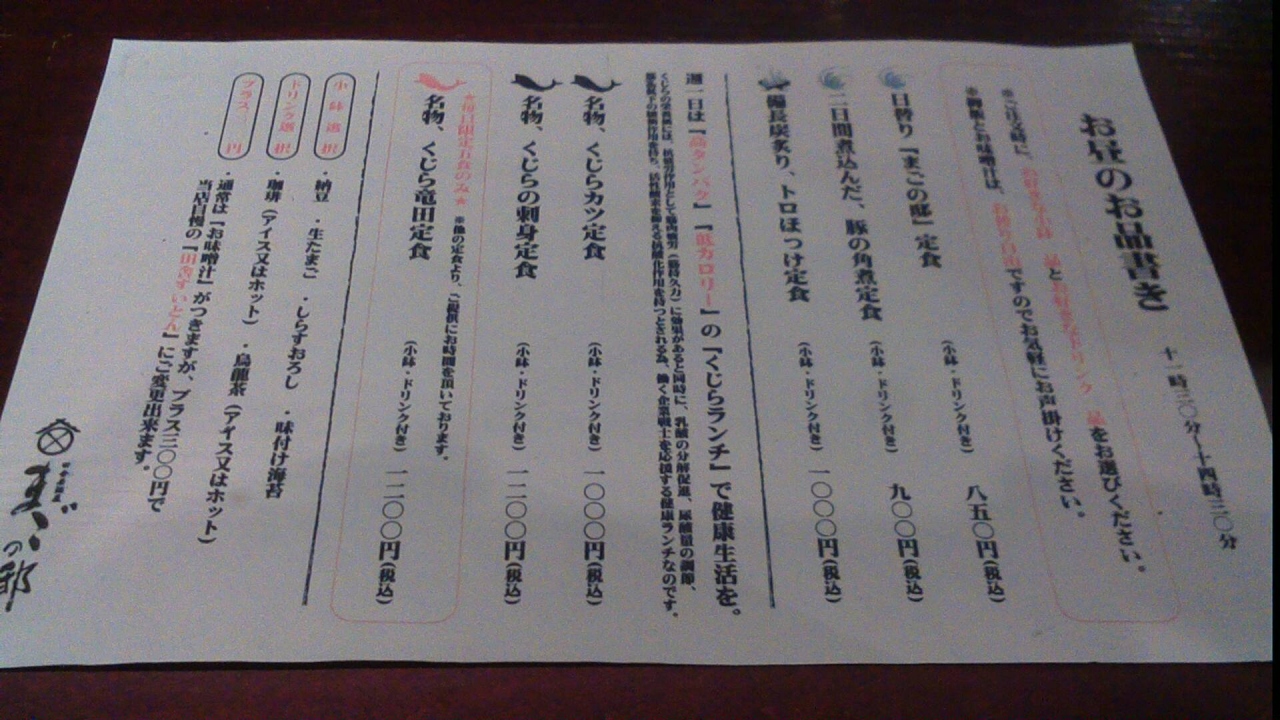 お昼のお品書き
十一時三〇分〜十四時三〇分
※ご注文時に、お好きな小鉢 品とお好きなドリンク 品をお選びください。
※御飯とお味噌汁は、お替り自由ですのでお気軽にお声掛けください。
日替り『まごの邸』定食 (小鉢・ドリンク付き) 八五〇円(税込)
二日間煮込んだ、豚の角煮定食 (小鉢・ドリンク付き) 九〇〇円(税込)
備長炭炙り、トロほっけ定食 (小鉢・ドリンク付き) 一〇〇〇円(税込)
週一日は『高タンパク』『低カロリー』の『くじらランチ』で健康生活を。
くじらの栄養価には、抗疲労作用として筋肉疲労(筋持久力)に効果があると同時に、乳酸の分解促進、尿酸量の調節、
働く企業戦士を応援する健康ランチなのです。
名物、くじらカツ定食 (小鉢・ドリンク付き) 一〇〇〇円(税込)
名物、くじらの刺身定食 (小鉢・ドリンク付き) 一二〇〇円(税込)
★毎日限定五食のみ★ ※他の定食より、ご提供にお時間を頂いております。
名物、くじら竜田定食 (小鉢・ドリンク付き) 一二〇〇円(税込)
小鉢選択 ・納豆 ・生たまご ・しらすおろし ・味付け海苔
ドリンク選択 ・珈琲(アイス又はホット) ・烏龍茶(アイス又はホット)
プラス 円 ・通常は『お味噌汁』がつきますが、プラス三〇〇円で
当店自慢の『田舎すいとん』にご変更出来ます。
まごの邸